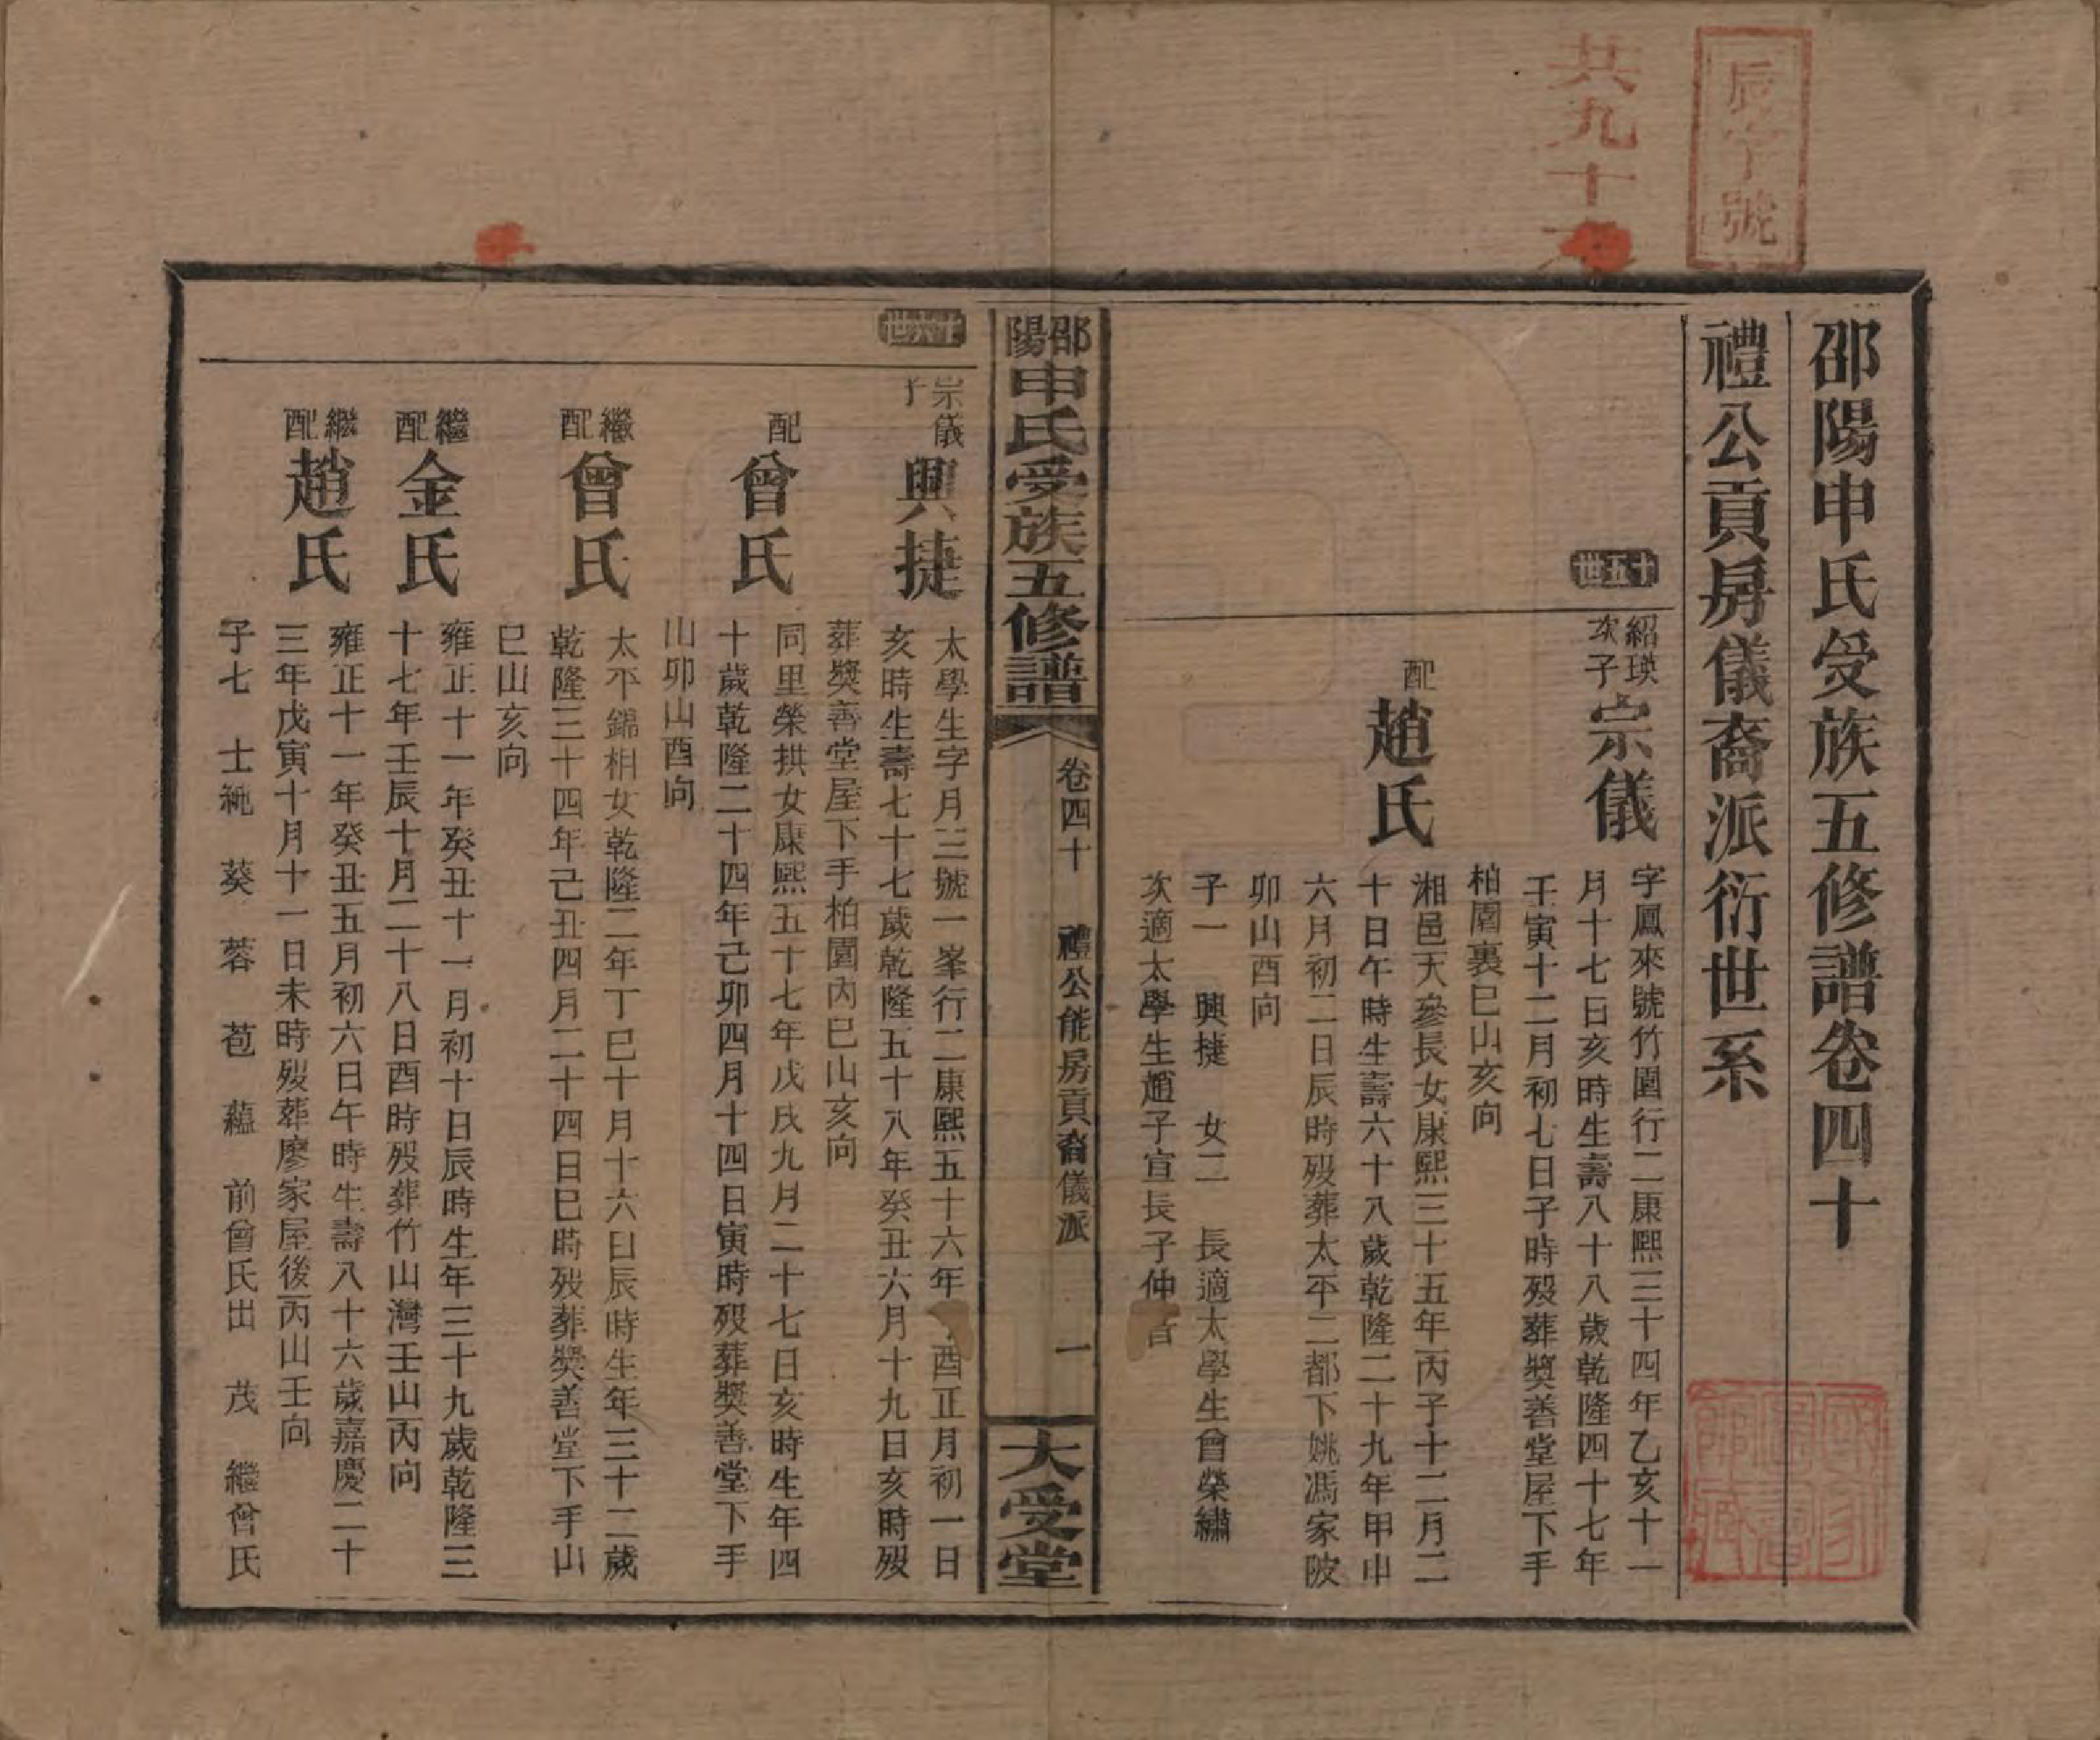 辰字號
共九十
邵陽申氏受族五修譜卷四十
禮公貢房儀裔派衍世系
十五世
紹瑛次子
宗儀
字鳳來號竹園行二康熙三十四年乙亥十一
月十七日亥時生壽八十八歲乾隆四十七年
壬寅十二月初七日子時歿葬獎善堂屋下手
柏園裏巳山亥向
配
趙氏
湘邑天參長女康熙三十五年丙子十二月二
十日午時生壽六十八歲乾隆二十九年甲申
六月初二日辰時歿葬太平二都下姚馮家陂
卯山酉向
子一 興捷 女二 長適太學生曾榮繡
次適太學生趙子宣長子仲
邵陽申氏受族五修譜
卷四十 禮公能房貢裔儀派 一
大受堂
十六世
宗儀子
興捷
太學生字月三號一峯行二康熙五十六年 酉正月初一日
亥時生壽七十七歲乾隆五十八年癸丑六月十九日亥時歿
葬獎善堂屋下手柏園內巳山亥向
配
曾氏
同里榮拱女康熙五十七年戊戌九月二十七日亥時生年四
十歲乾隆二十四年己卯四月十四日寅時歿葬獎善堂下手
山卯山酉向
繼配
曾氏
太平錦相女乾隆二年丁巳十月十六日辰時生年三十二歲
乾隆三十四年己丑四月二十四日巳時歿葬獎善堂下手山
巳山亥向
繼配
金氏
雍正十一年癸丑十一月初十日辰時生年三十九歲乾隆三
十七年壬辰十月二十八日酉時歿葬竹山灣壬山丙向
繼配
趙氏
雍正十一年癸丑五月初六日午時生壽八十六歲嘉慶二十
三年戊寅十月十一日未時歿葬廖家屋後丙山壬向
子七 士純 葵 蓉 苞 蘊 前曾氏出 茂 繼曾氏